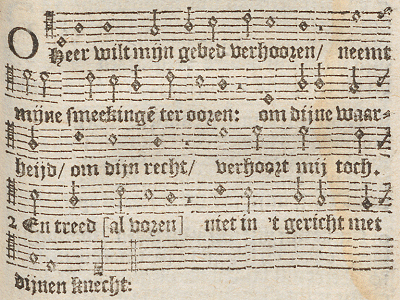 O Heer wilt mijn gebed verhooren/ neemt
mijne smeekingē ter ooren: om dijne waar-
heijd/ om dijn recht/ verhoort mij toch.
2 En treed [al voren] niet in 't gericht met
dijnen knecht: